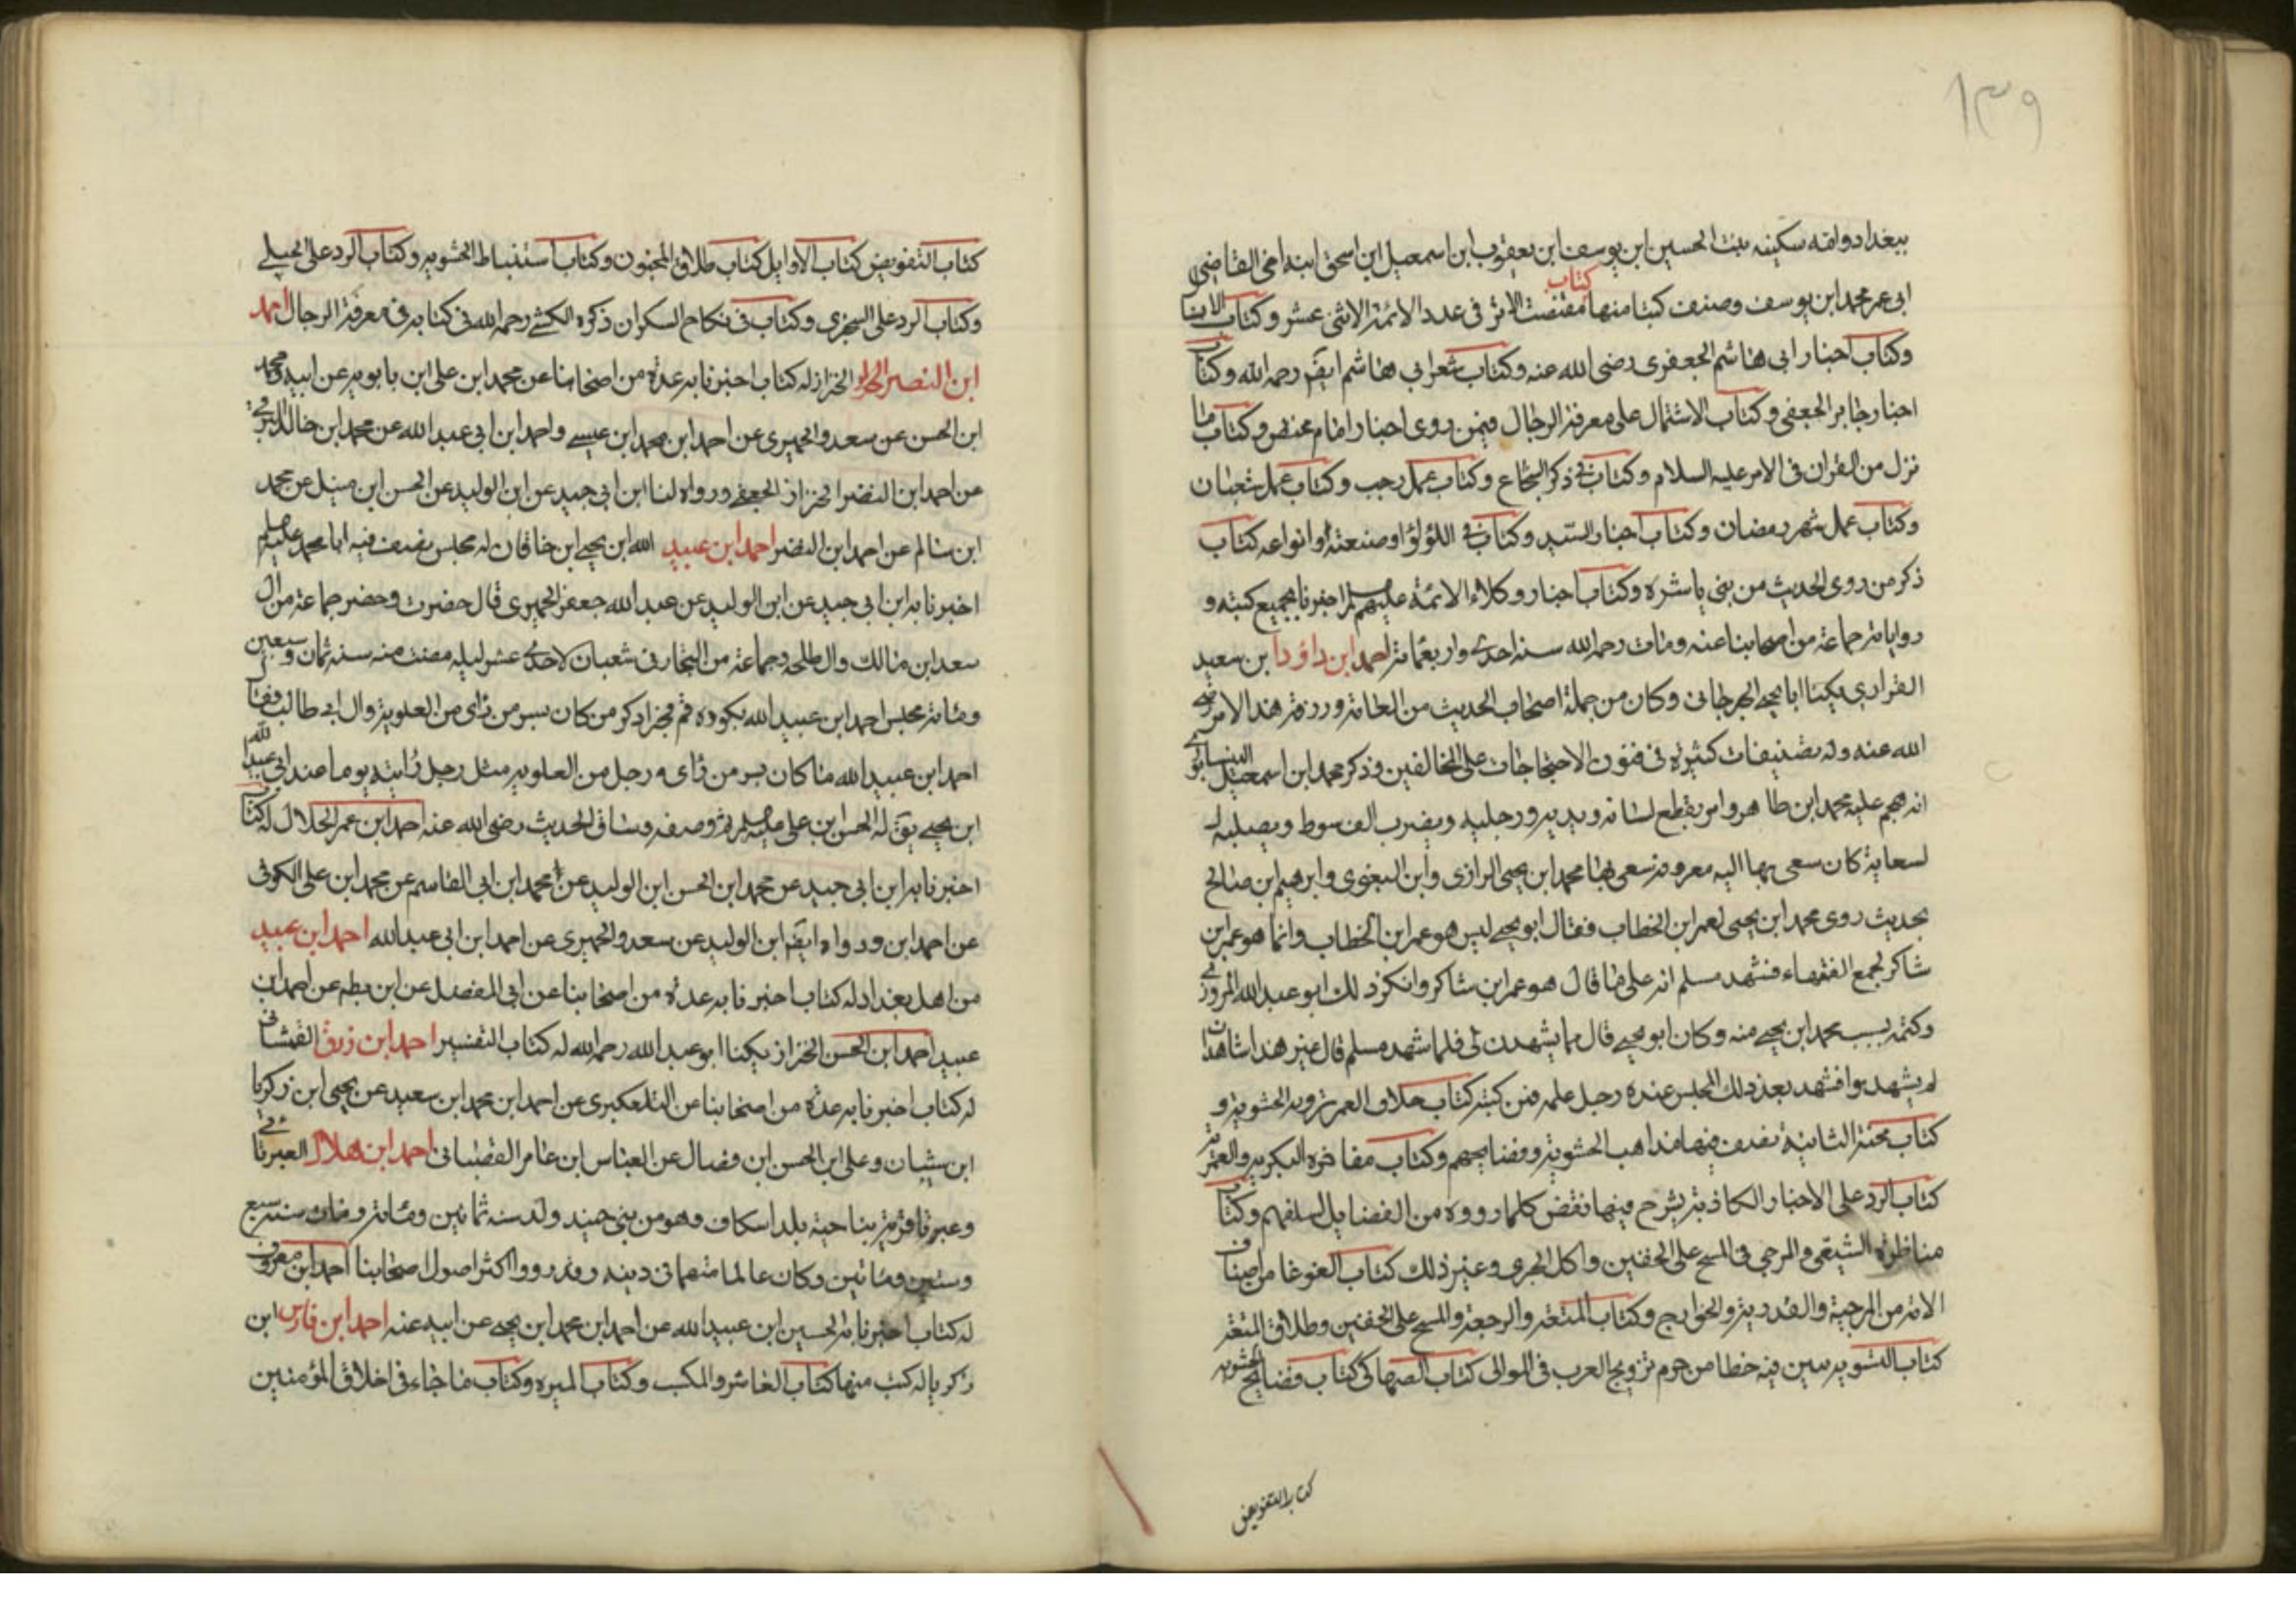 ١٣٩
ببغداد وامه سكينه بنت الحسين ابن يوسف ابن يعقوب ابن اسمعيل ابن اسحق ابنه اخى القاضى
ابى عمر محمد ابن يوسف وصنف كتبا منها كتاب مقتضب الاثر فى عدد الائمة الاثنى عشر وكتاب
وكتاب اخبار ابى هاشم الجعفرى رضى الله عنه وكتاب شعر ابى هاشم ايضا رحمه الله وكتاب
اخبار جابر الجعفى وكتاب الاشتمال على معرفة الرجال فيمن روى اخبار امام وكتاب ما
نزل من القران فى الامر عليه السلام وكتاب فى ذكر الشجاع وكتاب عمل رجب وكتاب عمل شعبان
وكتاب عمل شهر رمضان وكتاب اخبار السيد وكتاب فى اللؤلؤ وصنعته وانواعه كتاب
ذكر من روى الحديث من بنى ناشره وكتاب اخبار وكلاء الائمة عليهم اخبرنا بجميع كتبه و
رواياته جماعة من اصحابنا عنه ومات رحمه الله سنة احدى واربعمائة احمد ابن داؤد ابن سعيد
الفزارى يكنا ابا يحيى الجرجانى وكان من جملة اصحاب الحديث من العامة ورزقه هذا الامر رضى
الله عنه وله تصنيفات كثيرة فى فنون الاحتجاجات على المخالفين وذكر محمد ابن اسمعيل النيسابورى
انه هجم عليه محمد ابن طاهر وامر بقطع لسانه ويديه ورجليه ويضرب الف سوط ويصلبه
لسعاية كان سعى بها اليه معروفة سعى بها محمد ابن يحيى الرازى وابن البغوى وابرهيم ابن صالح
بحديث روى محمد ابن يحيى لعمر ابن الخطاب فقال ابو يحيى ليس هو عمر ابن الخطاب وانما هو عمر ابن
شاكر لجمع الفقهاء فشهد مسلم انه على ما قال هو عمر ابن شاكر وانكر ذلك ابو عبد الله المروزى
وكتمه بسبب محمد ابن يحيى منه وكان ابو يحيى قال هما يشهدن لى فلما شهد مسلم قال غير هذا شاهد ان
لم يشهد بوا فشهد بعد ذلك المجلس عنده رجل علمه فمن كتبه كتاب خلاف العمرية وبه الحشوية و
كتاب محنة الثانية يصف فيها مذاهب الحشوية وفضايحهم وكتاب مفاخره البكرية والعمرية
كتاب الرد على الاخبار الكاذبة يشرح فيها نقض كلما رووه من الفضايل لسلفهم وكتاب
مناظرة الشيعى والمرجى فى المسح على الخفين واكل الجرى وغير ذلك كتاب الغوغا من اصناف
الامة من المرجية والقدرية والخوارج وكتاب المتعة والرجعة والمسح على الخفين وطلاق المتعة
كتاب التسويه يبين فيه خطا من حرم تزويج العرب فى الموالى كتاب الصهاكى كتاب فضايح الحشويه
كتاب التفويض
كتاب التفويض كتاب الاوايل كتاب طلاق المجنون وكتاب استنباط الحشويه وكتاب الرد على الحنبلى
وكتاب الرد على السجزى وكتاب فى نكاح السكران ذكره الكشى رحمه الله فى كتابه فى معرفة الرجال احمد
ابن النضر الخزاز له كتاب اخبرنا به عدة من اصحابنا عن محمد ابن على ابن بابويه عن ابيه ومحمد
ابن الحسن عن سعد والحميرى عن احمد ابن محمد ابن عيسى واحمد ابن ابى عبد الله عن محمد ابن خالد البرقى
عن احمد ابن النضر الخزاز الجعفى ورواه لنا ابن ابى جيد عن ابن الوليد عن الحسن ابن متيل عن محمد
ابن سالم عن احمد ابن النضر احمد ابن عبيد الله ابن يحيى ابن خاقان له مجلس يصف فيه ابا محمد
اخبرنا به ابن ابى جيد عن ابن الوليد عن عبد الله جعفر الحميرى قال حضرت وحضر جماعة من ال
سعد ابن مالك وال طلحه وجماعة من التجار فى شعبان لاحدى عشر ليله مضت منه سنه ثمان وسبعين
ومائة مجلس احمد ابن عبيد الله بكوده قم فجرا ذكر من كان بسر من رأى من العلوية وال ابى طالب فقال
احمد ابن عبيد الله ما كان بسر من رأى رجل من العلويه مثل رجل رأيته يوما عند ابى عبيد الله
ابن يحيى يقال له الحسن ابن على ثم وصفه وساق الحديث رضى الله عنه احمد ابن عمر الحلال له كتاب
اخبرنا به ابن ابى جيد عن محمد ابن الحسن ابن الوليد عن محمد ابن ابى القاسم عن محمد ابن على الكوفى
عن احمد ابن ورواه ايضا ابن الوليد عن سعد والحميرى عن احمد ابن ابى عبد الله احمد ابن عبيد
من اهل بغداد له كتاب اخبرنا به عدة من اصحابنا عن ابى المفضل عن ابن بطه عن احمد ابن
عبيد احمد ابن الحسن الخزاز يكنا ابو عبد الله رحمه الله له كتاب التفسير احمد ابن رزق الغمشانى
له كتاب اخبرنا به عدة من اصحابنا عن التلعكبرى عن احمد ابن محمد ابن سعيد عن يحيى ابن زكريا
ابن شيبان وعلى ابن الحسن ابن فضال عن العباس ابن عامر القصبانى احمد ابن هلال العبرتائى
وعبرتا قرية بناحية بلد اسكاف وهو من بنى جنيد ولد سنه ثمانين ومائة ومات سنة سبع
وستين ومائتين وكان غاليا متهما فى دينه وقد روى اكثر اصول اصحابنا احمد ابن معروف
له كتاب اخبرنا به الحسين ابن عبيد الله عن احمد ابن محمد ابن يحيى عن ابيه عنه احمد ابن فارس ابن
زكريا له كتب منها كتاب المعاشر والمكسب وكتاب الميره وكتاب ما جاء فى اخلاق المؤمنين